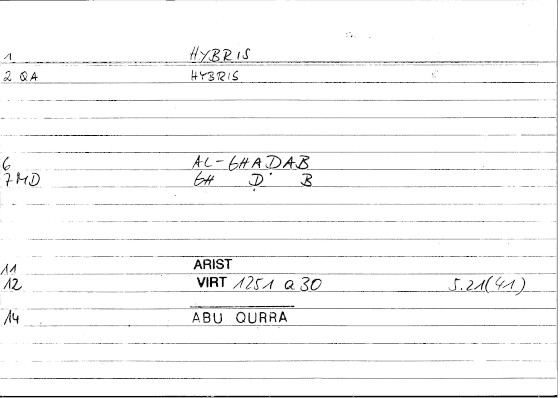 1 HYBRIS
2 QA HYBRIS
6 AL-GHAḌAB
7 MD GH Ḍ B
11 ARIST
12 VIRT 1251 a 30 5.21(41)
14 ABU QURRA